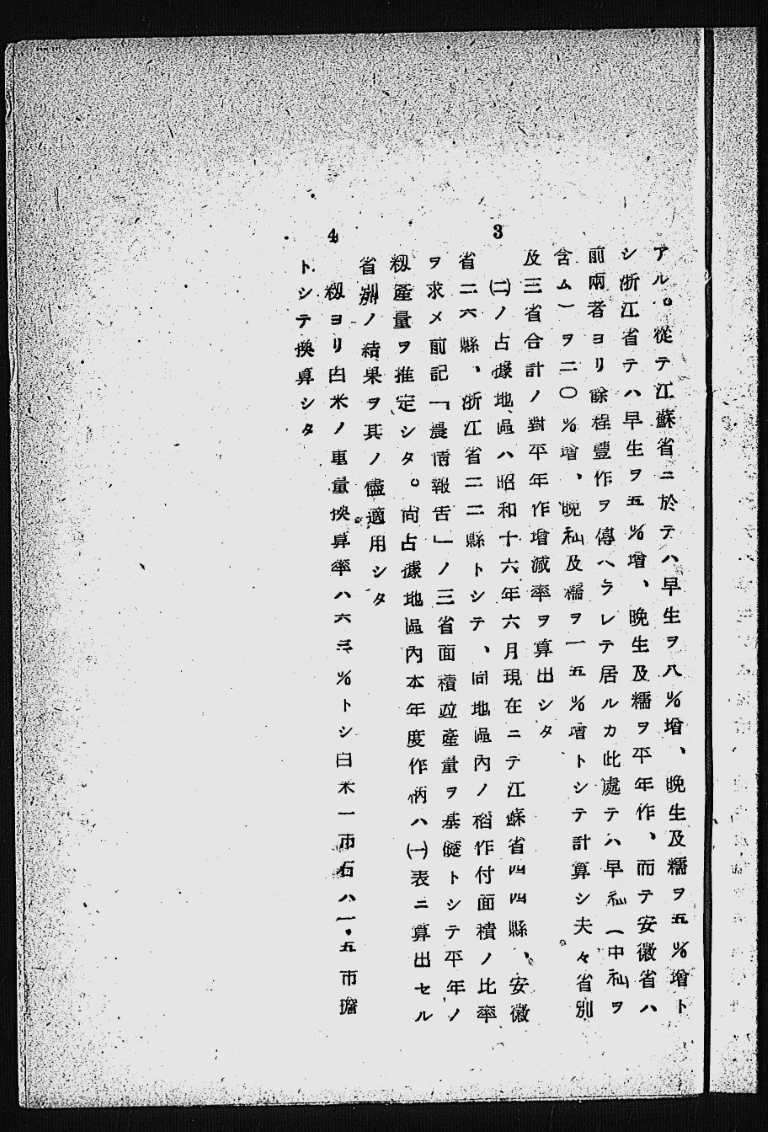 アル。從テ江蘇省ニ於テハ早生ヲ八％增、晚生及糯ヲ五％增ト
シ浙江省テハ早生ヲ五％增、晚生及糯ヲ平年作、而テ安徽省ハ
前兩者ヨリ餘程豐作ヲ傳ヘラレテ居ルカ此處テハ早秈（中秈ヲ
含ム）ヲ二〇％增、晚秈及糯ヲ一五％增トシテ計算シ夫々省別
及三省合計ノ對平年作增減率ヲ算出シタ
3 ㈡ノ占據地區ハ昭和十六年六月現在ニテ江蘇省四四縣、安徽
省二六縣、浙江省二二縣トシテ、同地區內ノ稻作付面積ノ比率
ヲ求メ前記「農情報吿」ノ三省面積竝產量ヲ基礎トシテ平年ノ
籾產量ヲ推定シタ。尚占據地區內本年度作柄ハ㈠表ニ算出セル
省別ノ結果ヲ其ノ儘適用シタ
4 籾ヨリ白米ノ重量換算率ハ六三％トシ白米一市石ハ一・五市擔
トシテ換算シタ